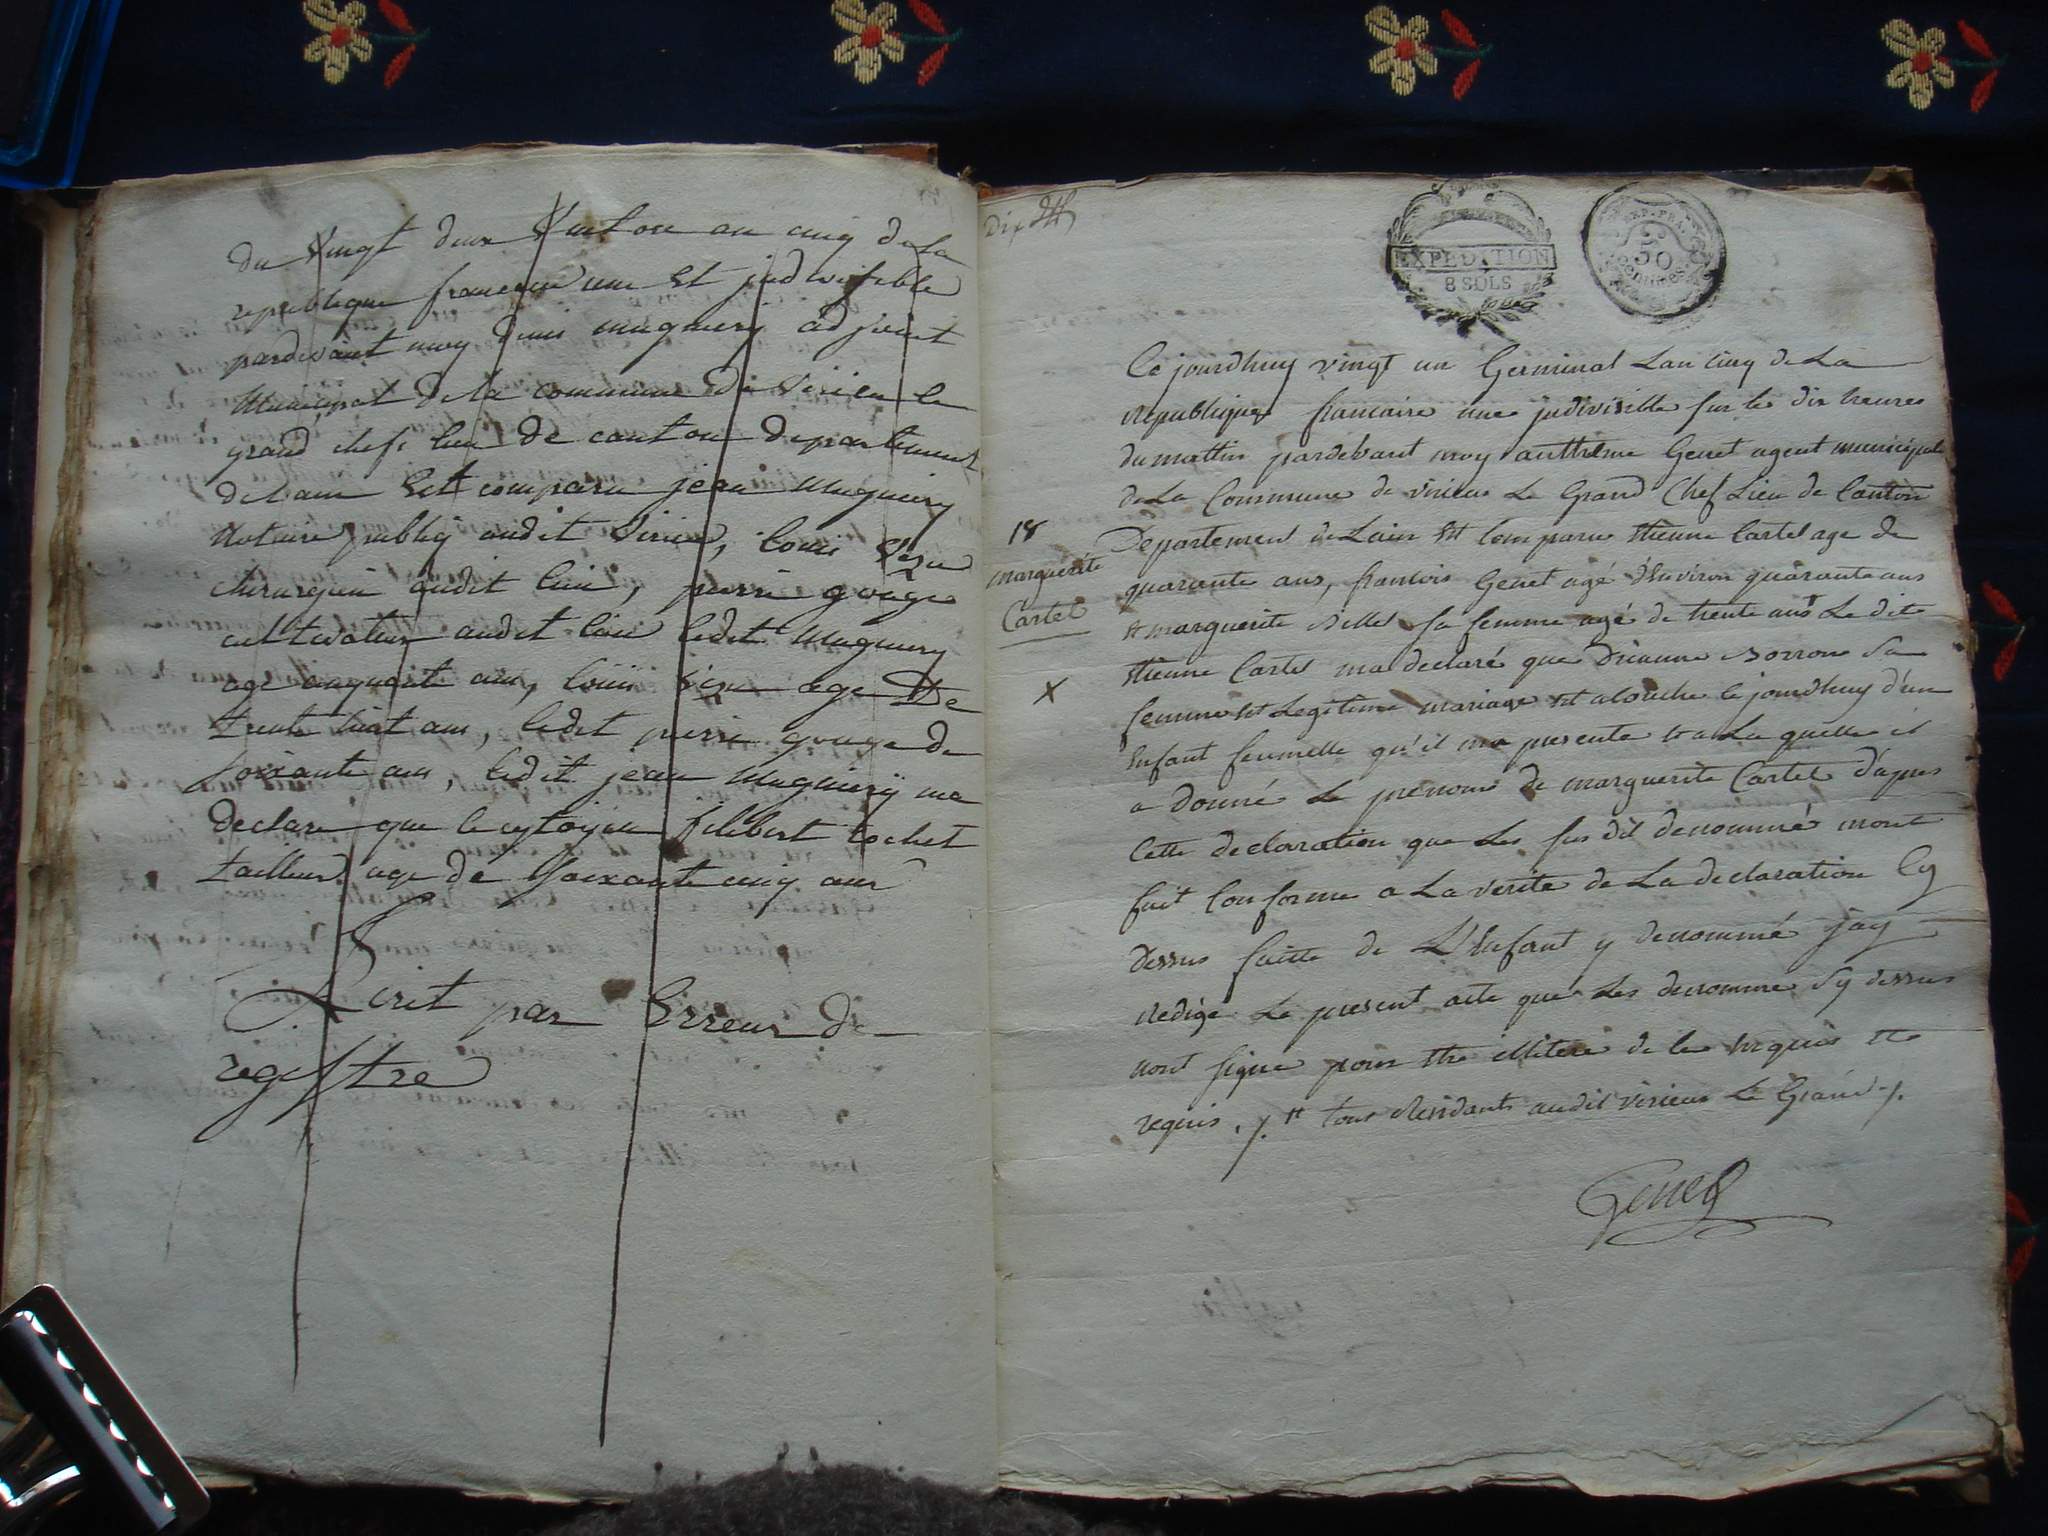 du vingt deux Vantose an cinq de La
republique francoise une Et judivisible
pardevant moy Denis muguiery adjoint
Municipal de la commune de Virieu le
grand chefs lieu de canton departement
de L'ain Est comparu jean Muguiery
Notaire publiq audit Virieu, Louis
chirurgien audit lieu, pierre gouge
cultivateur audit lieu ledit Muguiery
age cinquante ans, Louis age De
trente huit ans, ledit pierre gouge de
soixante ans, ledit jean Muguiery ma
declare que le cytoyen filibert Cochet
tailleur age de Soixante cinq ans
Ecrit par Erreur de
registre
Dix
EXPEDITION
8 SOLS
REP. FRA.
50
centimes
Ce jourdhuy vingt un Germinal Lan Cinq de La
Republique francaise une judivisible sur les dix heures
du mattin pardevant moy antheme Genet agent municipal
de La Commune de virieu Le Grand Chef Lieu de Canton
18
Departement de Lain Et Comparu Etienne Cartel age de
Marguerite
quarante ans, francois Genet agé d'Environ quarante ans
Cartel
Et marguerite sa femme agé de trente ans Le dit
X
Etienne Cartel ma declaré que sa
femme Et Legitime mariage Et alouche le jourdhuy d'un
Enfant feumelle qu'il ma presente Et a La quelle il
a donné Le prenoms de marguerite Cartel d'apres
Cette declaration que Les sus dit denommé mont
fait Conforme a La verite de La declaration Cy
dessus faitte de L'Enfant y denommé jay
Redige Le present acte que Les denomme Sy dessus
nont signe pour Etre illitere de le requis
requis . /. Et tous Residants audit virieux Le Grand /.
Genet